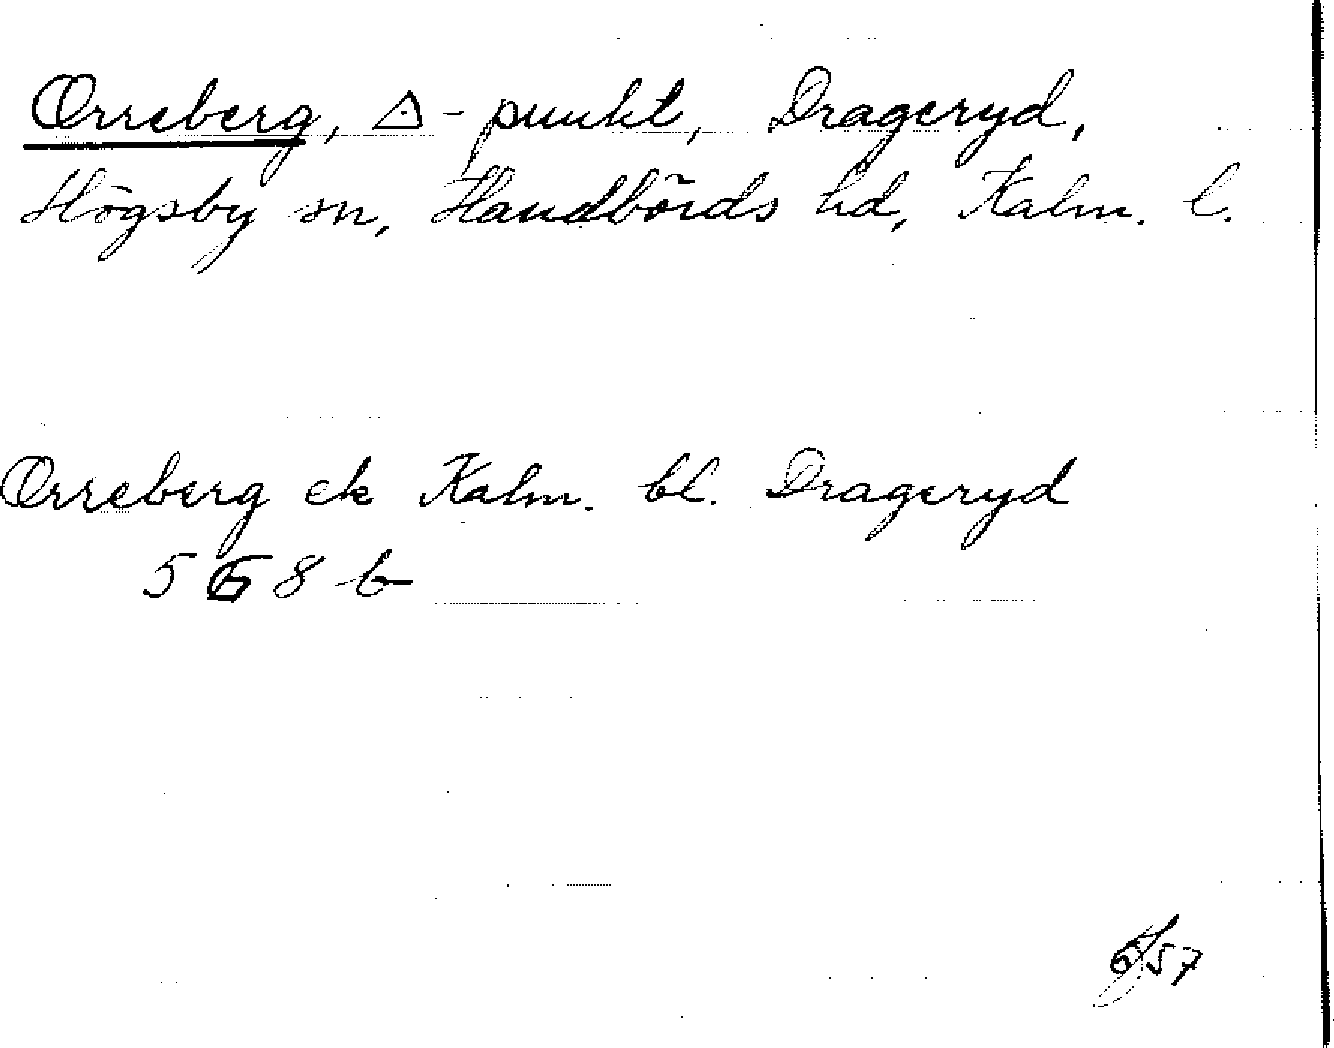 Orreberg, △-punkt, Drageryd,
Högsby sn, Handbörds hd, Kalm. l.
Orreberg ek Kalm. bl. Drageryd
5 G 8 b
6/57